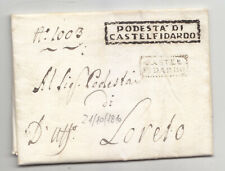 N.° 1003
PODESTA' DI
CASTELFIDARDO
CASTEL
FIDARDO
Al Sig.r Podestà
di
21/10/1810
D'Uff.o Loreto